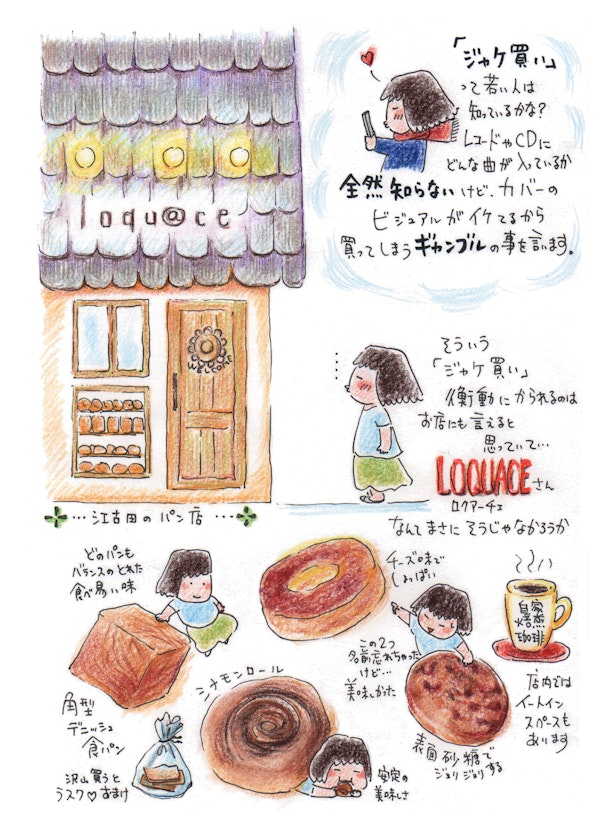 「ジャケ買い」
って若い人は
知っているかな?
レコードやCDに
どんな曲が入っているか
全然知らないけど、カバーの
ビジュアルがイケてるから
買ってしまうギャンブルの事を言います。
loqu@ce
WELCOME
そういう
「ジャケ買い」
衝動にかられるのは
お店にも言えると
思っていて…
LOQUACEさん
ロクアーチェ
なんてまさにそうじゃなかろうか
…江古田のパン店…
どのパンも
バランスのとれた
食べ易い味
角型
デニッシュ
食パン
沢山買うと
ラスク♡おまけ
シナモンロール
安定の
美味しさ
チーズ味で
しょっぱい
この2つ
名前忘れちゃった
けど…
美味しかった
表面砂糖で
ジョリジョリする
自家
焙煎
珈琲
店内では
イートイン
スペースも
あります